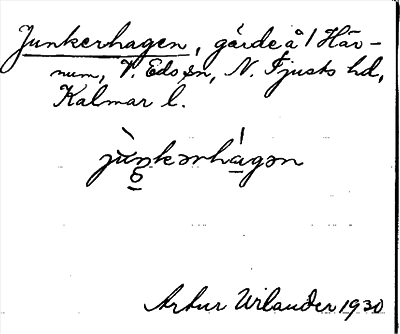 Junkerhagen, gärde å / Här-
num, V. Eds sn, N. Tjusts hd,
Kalmar l.
jùŋkərhágən
Artur Wilander 1930